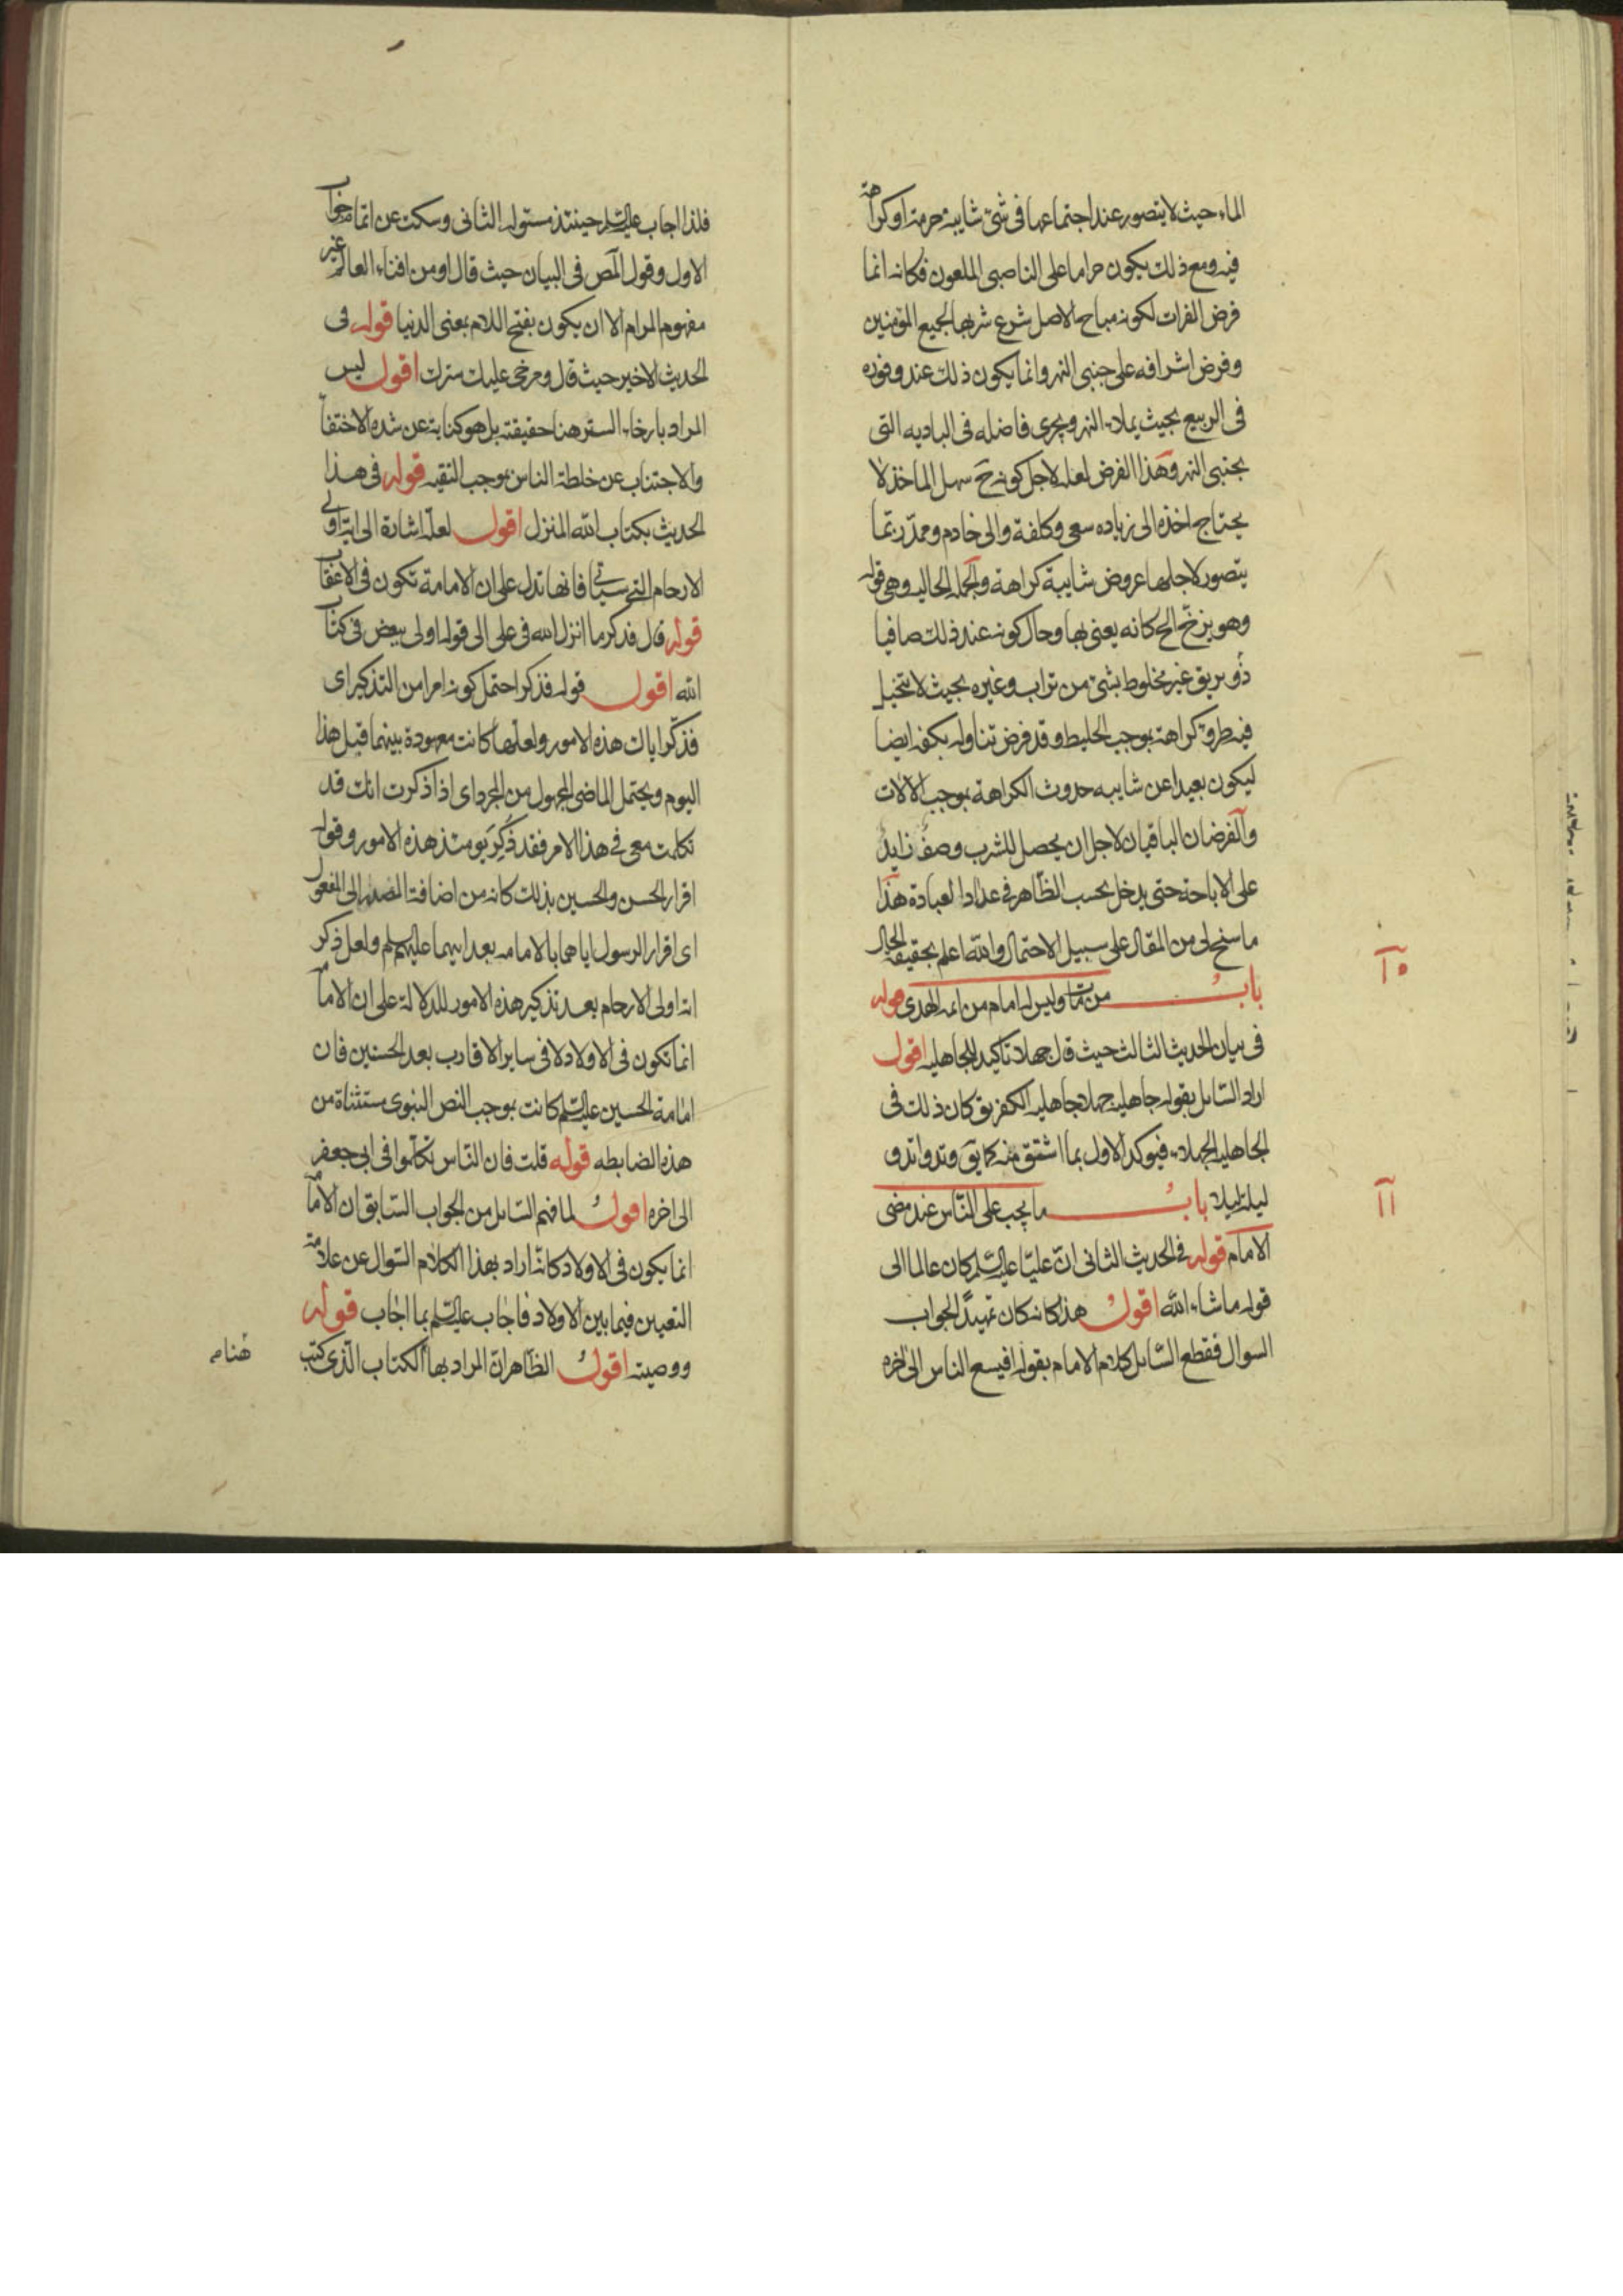 الماء حيث لا يتصور عند اجتماعها فى شئ شايبة حرمة او كراهة
فيه ومع ذلك يكون حراما على الناصبى الملعون فكانه انما
فرض الفرات لكونه مباح الاصل شرع شربها لجميع المؤمنين
وفرض اشرافه على جنبى النهر وانما يكون ذلك عند وفوره
فى الربيع بحيث يملاء النهر ويجرى فاضله فى الباديه التى
بجنبى النهر وهذا الفرض لعله لاجل كونه ح سهل الماخذ لا
يحتاج اخذه الى زياده سعى وكلفة والى خادم وممد ربما
يتصور لاجلها عروض شايبة كراهة والجمله الحاليه وهى قوله
وهو يزخ الخ كانه يعنى بها وحال كونه عند ذلك صافيا
ذو بريق غير مخلوط بشئ من تراب وغيره بحيث لا يتخيل
فيه طروّ كراهة بوجب الخليط وقد فرض تناوله بكفه ايضا
ليكون بعيدا عن شايبه حدوث الكراهة بوجب الالات
والفرضان الباقيان لاجل ان يحصل للشرب وصف زايد
على الاباحة حتى يدخل بحسب الظاهر فى عداد العبادة هذا
ما سنح لى من المقال على سبيل الاحتمال والله اعلم بحقيقة الحال
باب من مات وليس له امام من ائمه الهدى قوله
فى بيان الحديث الثالث حيث قال جهلاء تاكيد للجاهليه اقول
اراد السائل بقوله جاهلية جهلاء جاهليه الكفر يق كان ذلك فى
الجاهلية الجهلاء فيوكد الاول بما اشتق منه كما يق وتد واتد و
ليلة ليلاء باب ما يجب على الناس عند مضى
الامام قوله فى الحديث الثانى ان عليا عليه السلم كان عالما الى
قوله ما شاء الله اقول هذا كانه كان تمهيدا لجواب
السوال فقطع السائل كلام الامام بقوله افيسع الناس الى اخره
١٥
١١
فلذا اجاب عليه السلم حينئذ مسئوله الثانى وسكت عن اتمام جواب
الاول وقول المص فى البيان حيث قال او من افناء العالم غير
مفهوم المرام الا ان يكون بفتح اللام بمعنى الدنيا قوله فى
الحديث الاخير حيث قال ومرخى عليك سترك اقول ليس
المراد بارخاء الستر هنا حقيقته بل هو كناية عن شده الاختفا
والاجتناب عن خلطة الناس بوجب التقيه قوله فى هذا
الحديث بكتاب الله المنزل اقول لعله اشارة الى اية اولى
الارحام التى سياتى فانها تدل على ان الامامة تكون فى الاعقاب
قوله قال فذكر ما انزل الله فى على الى قوله اولى ببعض فى كتاب
الله اقول قوله فذكر احتمل كونه امرا من التذكير اى
فذكر اياك هذه الامور ولعلها كانت معهودة بينهما قبل هذا
اليوم ويحتمل الماضى المجهول من المجرد اى اذا ذكرت انك قد
تكلمت معى فى هذا الامر فقد ذكر يومئذ هذه الامور وقوله
اقرار الحسن والحسين بذلك كانه من اضافة المصدر الى المفعول
اى اقرار الرسول اياهما بالامامه بعد ابيهما عليهم السلم ولعل ذكر
انه اولى الارحام بعد تذكير هذه الامور للدلالة على ان الامامة
انما تكون فى الاولاد لا فى ساير الاقارب بعد الحسنين فان
امامة الحسين عليه السلم كانت بموجب النص النبوى مستثناة من
هذه الضابطه قوله قلت فان الناس تكلموا فى ابى جعفر
الى اخره اقول لما فهم السائل من الجواب السابق ان الامامة
انما يكون فى الاولاد كانه اراد بهذا الكلام السوال عن علامة
التعيين فيما بين الاولاد فاجاب عليه السلم بما اجاب قوله
ووصيته اقول الظاهر ان المراد بها الكتاب الذى كتب